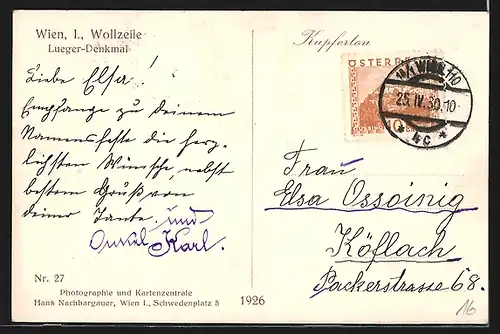 Wien, I., Wollzeile
Lueger-Denkmal
Kupferton
Liebe Elsa!
Empfange zu Deinem
Namensfeste die herz-
lichsten Wünsche, nebst
bestem Gruß von
deiner Tante und
Onkel Karl.
ÖSTERREICH
10
WIEN 110
25.IV.30.10
* 4c *
Frau
Elsa Ossoinig
Köflach
Packerstrasse 68.
Nr. 27
Photographie und Kartenzentrale
Hans Nachbargauer, Wien I., Schwedenplatz 5
1926
16